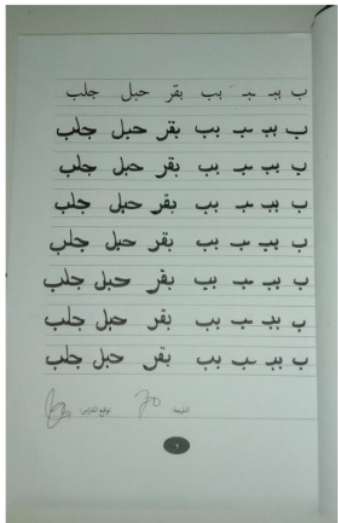 ب ببـ ـبـ بب بقر حبل جلب
ب ببـ ـبـ بب بقر حبل جلب
ب ببـ ـبـ بب بقر حبل جلب
ب ببـ ـبـ بب بقر حبل جلب
ب ببـ ـبـ بب بقر حبل جلب
ب ببـ ـبـ بب بقر حبل جلب
ب ببـ ـبـ بب بقر حبل جلب
ب ببـ ـبـ بب بقر حبل جلب
النتيجة توقيع المدرس